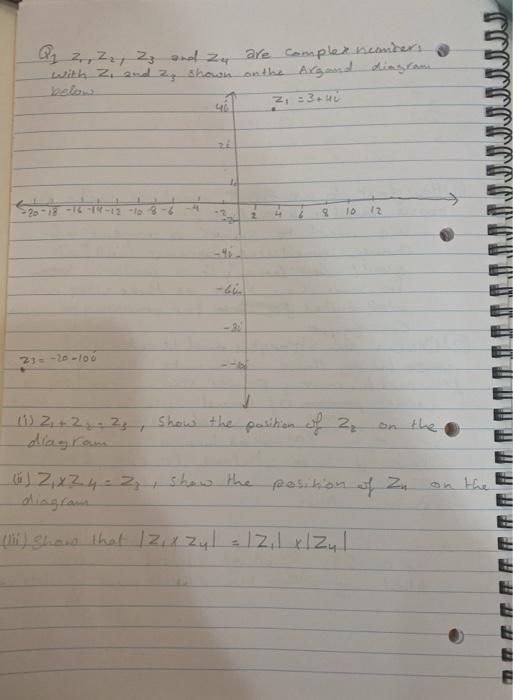 Q1 Z1, Z2, Z3 and Z4 are complex numbers
with Z1 and Z3 shown on the Argand diagram
below
4i Z1 = 3+4i
2i
-20 -18 -16 -14 -12 -10 -8 -6 -4 -2 2 4 6 8 10 12
-4i
-6i
-8i
Z3 = -20-10i -10i
(i) Z1 + Z2 = Z3, show the position of Z2 on the
diagram
(ii) Z1 x Z4 = Z3, show the position of Z4 on the
diagram
(iii) Show that |Z1 x Z4| = |Z1| x |Z4|